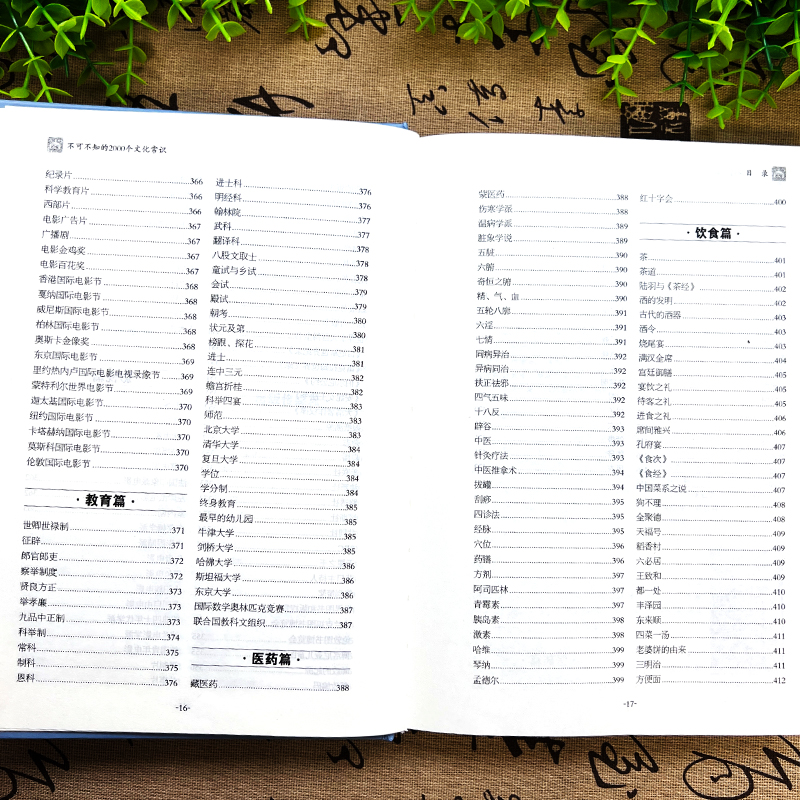 不可不知的2000个文化常识
纪录片 366
科学教育片 366
西部片 366
电影广告片 367
广播剧 367
电影金鸡奖 367
电影百花奖 367
香港国际电影节 368
戛纳国际电影节 368
威尼斯国际电影节 368
柏林国际电影节 368
奥斯卡金像奖 368
东京国际电影节 369
里约热内卢国际电影电视录像节 369
蒙特利尔世界电影节 369
迦太基国际电影节 370
纽约国际电影节 370
卡塔赫纳国际电影节 370
莫斯科国际电影节 370
伦敦国际电影节 370
·教育篇·
世卿世禄制 371
征辟 371
郎官郎吏 372
察举制度 372
贤良方正 373
举孝廉 373
九品中正制 373
科举制 374
常科 375
制科 375
恩科 376
进士科 376
明经科 376
翰林院 377
武科 377
翻译科 378
八股文取士 378
童试与乡试 378
会试 379
殿试 379
朝考 380
状元及第 380
榜眼、探花 381
进士 381
连中三元 382
蟾宫折桂 382
科举四宴 383
师范 383
北京大学 383
清华大学 384
复旦大学 384
学位 384
学分制 384
终身教育 385
最早的幼儿园 385
牛津大学 385
剑桥大学 385
哈佛大学 386
斯坦福大学 386
东京大学 386
国际数学奥林匹克竞赛 387
联合国教科文组织 387
·医药篇·
藏医药 388
-16-
目 录
蒙医药 388
伤寒学派 388
温病学派 389
脏象学说 389
五脏 390
六腑 390
奇恒之腑 390
精、气、血 390
五轮八廓 391
六淫 391
七情 391
同病异治 392
异病同治 392
扶正祛邪 392
四气五味 392
十八反 392
辟谷 393
中医 393
针灸疗法 393
中医推拿术 394
拔罐 394
刮痧 395
四诊法 395
经脉 395
穴位 396
药膳 396
方剂 397
阿司匹林 397
青霉素 397
胰岛素 398
激素 398
哈维 399
琴纳 399
孟德尔 399
红十字会 400
·饮食篇·
茶 401
茶道 401
陆羽与《茶经》 402
酒的发明 402
古代的酒器 403
酒令 403
烧尾宴 403
满汉全席 404
宫廷御膳 405
宴饮之礼 405
待客之礼 405
进食之礼 406
席间雅兴 406
孔府宴 407
《食次》 407
《食经》 407
中国菜系之说 407
狗不理 408
全聚德 408
天福号 409
稻香村 409
六必居 409
王致和 409
都一处 410
丰泽园 410
东来顺 410
四菜一汤 411
老婆饼的由来 411
三明治 411
方便面 412
-17-